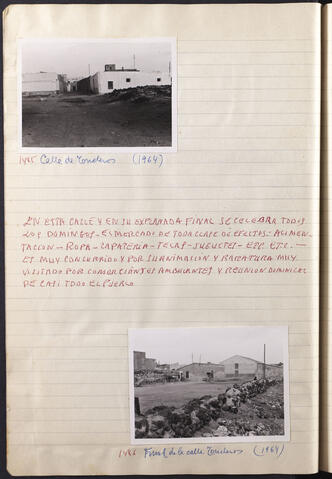 1485 Calle de Tonderos (1964)
EN ESTA CALLE Y EN SU EXPLANADA FINAL SE CELEBRA TODOS
LOS DOMINGOS - EL MERCADO DE TODA CLASE DE EFECTOS - ALIMEN-
TACION - ROPA - ZAPATERIA - TELAS - JUGUETES - ETC. ETC. -
ES MUY CONCURRIDO Y POR SU ANIMACION Y BARATURA MUY
VISITADO POR COMERCIANTES AMBULANTES Y REUNION DOMINICAL
DE CASI TODO EL PUEBLO
1486 Final de la calle Tonderos (1964)